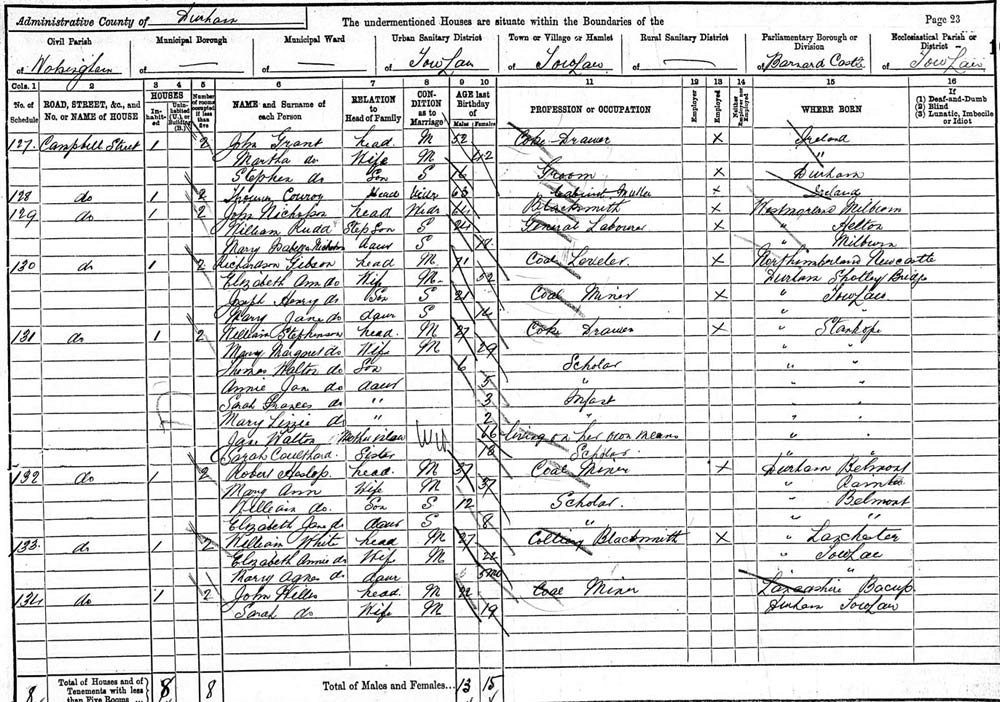 Administrative County of Durham The undermentioned Houses are situate within the Boundaries of the Page 23
Civil Parish Municipal Borough Municipal Ward Urban Sanitary District Town or Village or Hamlet Rural Sanitary District Parliamentary Borough or Division Ecclesiastical Parish or District
of Wolsingham of — of — of Tow Law of Tow Law of — of Barnard Castle of Tow Law
Cols. 1 2 3 4 5 6 7 8 9 10 11 12 13 14 15 16
No. of Schedule ROAD, STREET, &c., and No. or NAME of HOUSE HOUSES Inhabited Uninhabited (U.), or Building (B.) Number of rooms occupied if less than five NAME and Surname of each Person RELATION to Head of Family CONDITION as to Marriage AGE last Birthday of Males Females PROFESSION or OCCUPATION Employer Employed Neither Employer nor Employed WHERE BORN If (1) Deaf-and-Dumb (2) Blind (3) Lunatic, Imbecile or Idiot
127 Campbell Street 1 2 John Grant head M 52 Coke Drawer X Ireland
Martha do Wife M 42 "
Stephen do Son S 16 Groom X Durham
128 do 1 2 Conroy Head Widr 63 Cabinet X Ireland
129 do 1 2 John Nicholson head Widr 64 Blacksmith X Westmorland Milburn
William Rudd Step Son S 24 General Labourer X " Helton
Mary Nicholson daur S " Milburn
130 do 1 2 Richardson Gibson head M 71 Coal Leveler X Northumberland Newcastle
Elizabeth Ann do Wife M 52 Durham Shotley Bridge
Joseph Henry do Son S 21 Coal Miner X " Tow Law
Mary Jane do daur S 14 " "
131 do 1 2 William Stephenson head M 27 Coke Drawer X " Stanhope
Mary Margaret do Wife M 29 " "
Thomas Walton do Son 6 Scholar " "
Annie Jane do daur 5 " " "
Sarah Frances do " 3 Infast " "
Mary Lizzie do " 2 " " "
Jane Walton Mother in law Wid 66 living on her own means " "
Sarah Coulthard Sister 10 Scholar " "
132 do 1 2 Robert Heslop head M 37 Coal Miner X Durham Belmont
Mary Ann Wife M 37 "
William do Son S 12 Scholar " Belmont
Elizabeth Jane do daur S 8 " " "
133 do 1 2 William White head M 27 Colliery Blacksmith X " Lanchester
Elizabeth Annie do Wife M 22 " Tow Law
Mary Agnes do daur "
134 do 1 2 John Hilles head M 22 Coal Miner Lancashire Bacup
Sarah do Wife M 19 Durham Tow Law
8 Total of Houses and of Tenements with less than Five Rooms 8 8 Total of Males and Females... 13 15